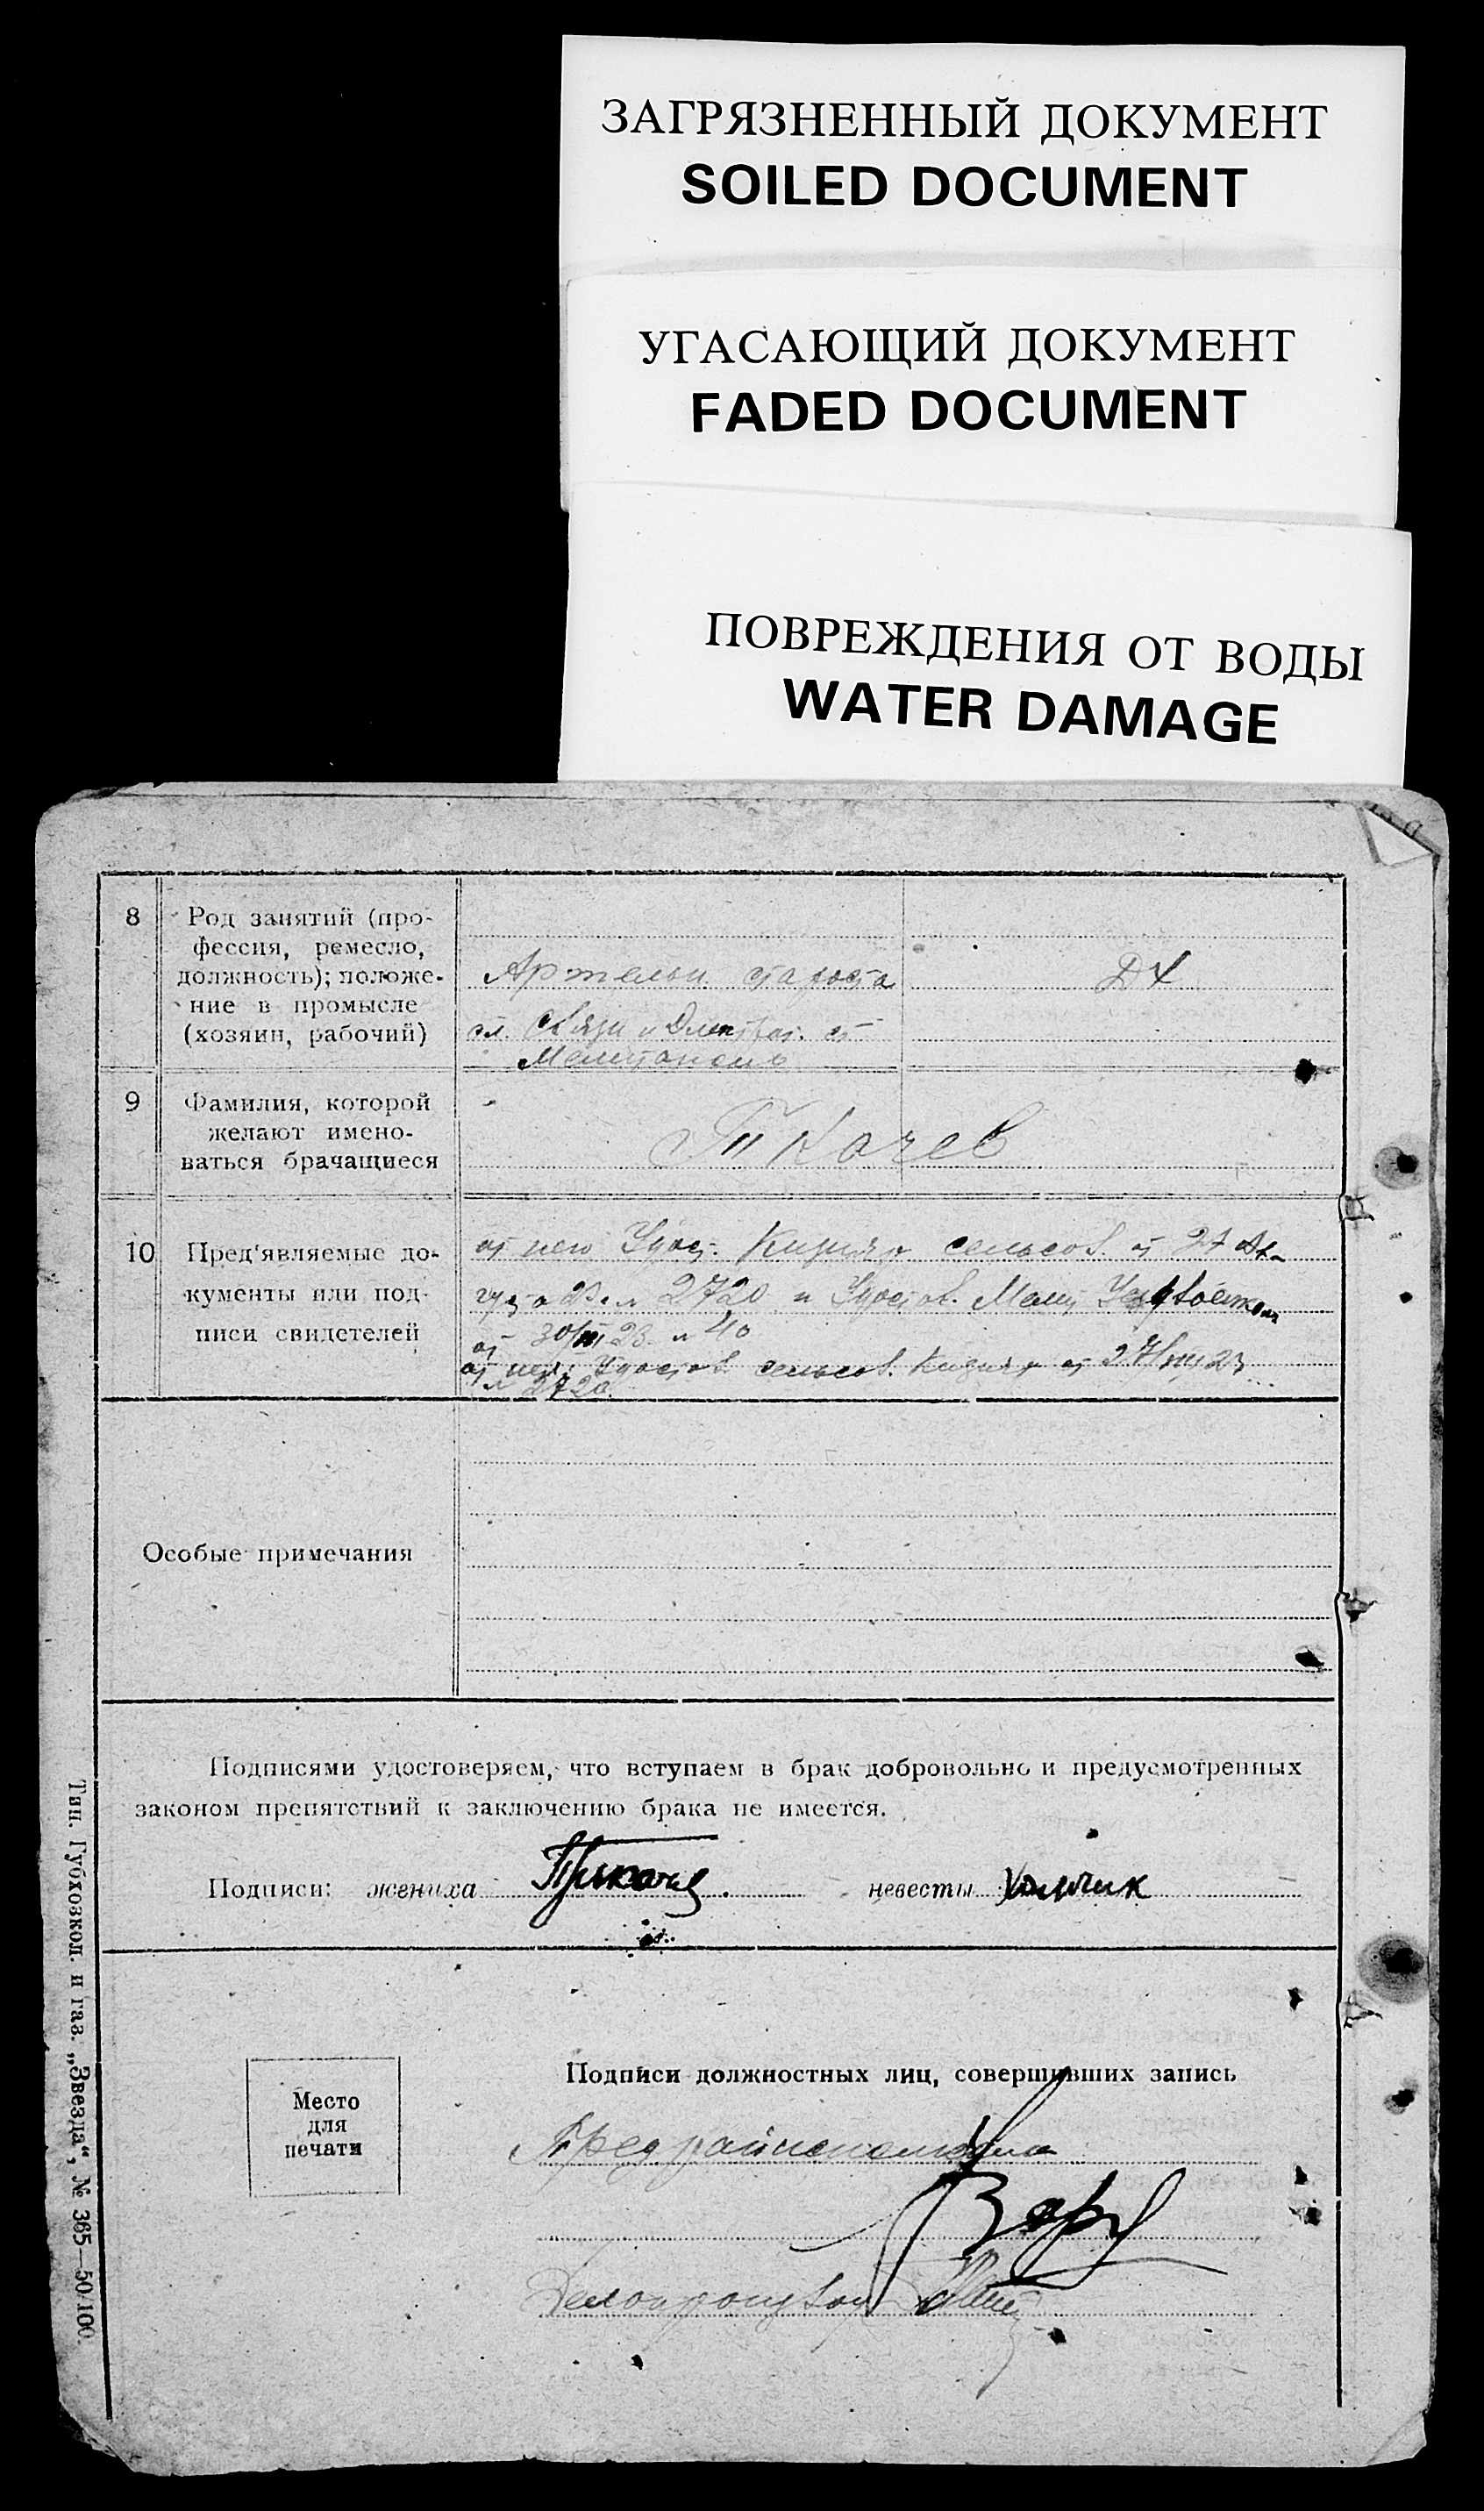 ЗАГРЯЗНЕННЫЙ ДОКУМЕНТ
SOILED DOCUMENT
УГАСАЮЩИЙ ДОКУМЕНТ
FADED DOCUMENT
ПОВРЕЖДЕНИЯ ОТ ВОДЫ
WATER DAMAGE
8 Род занятий (про-
фессия, ремесло,
должность); положе-
ние в промысле
(хозяин, рабочий)
Артельн. староста
сл. Связи и Электрот. ст
Мелитополь
ДХ
9 Фамилия, которой
желают имено-
ваться брачащиеся
Ткачев
10 Пред'являемые до-
кументы или под-
писи свидетелей
от него Удост. Кизияр сельсов. от 27 Ав-
густа 23 № 2720 и Удостов. Мелит
от 30/VIII 23 № 40
от нея: Удостов. сельсов. Кизияр от 27/VIII 23
№ 2720
Особые примечания
Подписями удостоверяем, что вступаем в брак добровольно и предусмотренных
законом препятствий к заключению брака не имеется.
Подписи: жениха невесты
Место
для
печати
Подписи должностных лиц, совершивших запись
Пред райисполкома
Делопроизвод
Тип. Губхозкол. и газ. „Звезда“, № 365—50/100.